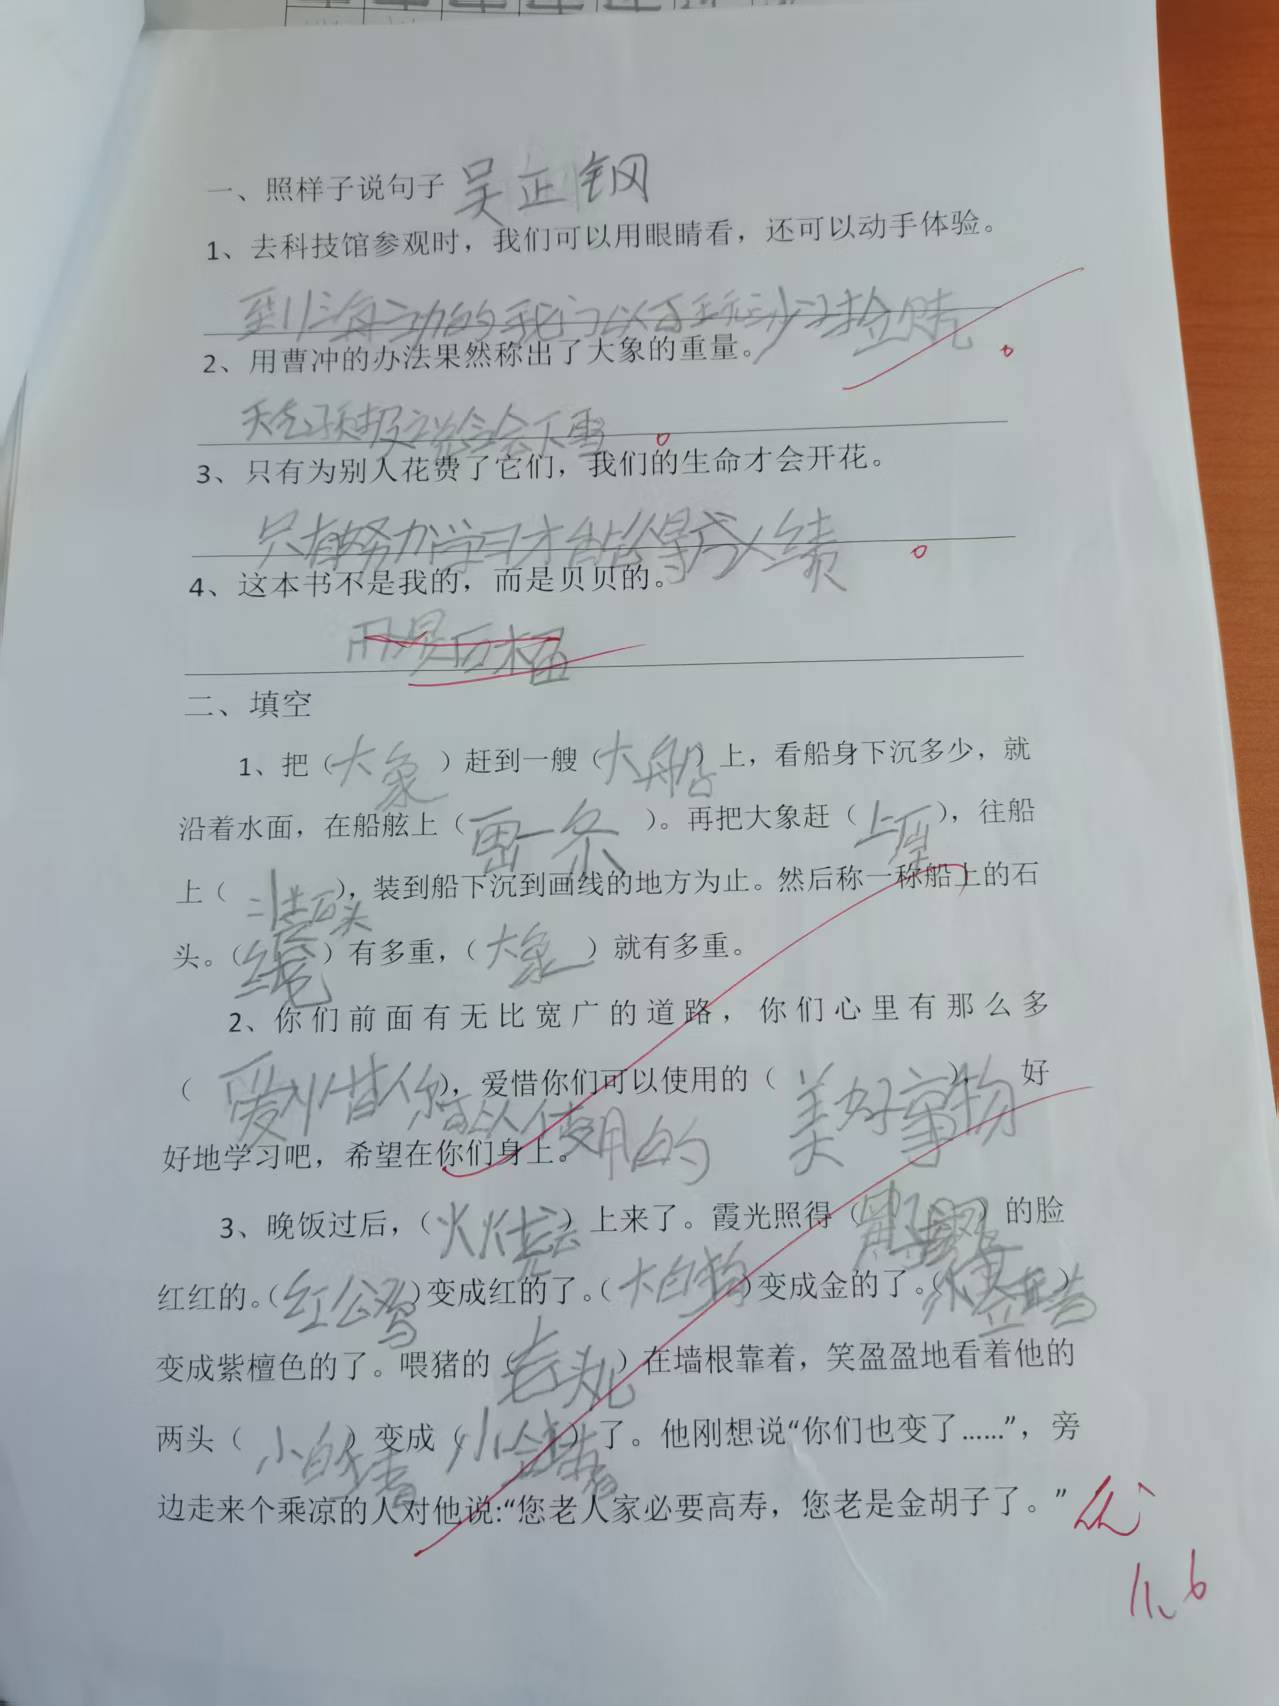 一、照样子说句子 吴正钢
1、去科技馆参观时，我们可以用眼睛看，还可以动手体验。
到海边的我们可以玩沙子捡贝壳
2、用曹冲的办法果然称出了大象的重量。
天气预报说会下雪。
3、只有为别人花费了它们，我们的生命才会开花。
只有努力学习才能得成绩。
4、这本书不是我的，而是贝贝的。
而是
二、填空
1、把（大象）赶到一艘（大船）上，看船身下沉多少，就
沿着水面，在船舷上（画一条）。再把大象赶（上岸），往船
上（装石头），装到船下沉到画线的地方为止。然后称一称船上的石
头。（）有多重，（大象）就有多重。
2、你们前面有无比宽广的道路，你们心里有那么多
（爱惜你可以使用的），爱惜你们可以使用的（美好事物），好
好地学习吧，希望在你们身上。
3、晚饭过后，（火烧云）上来了。霞光照得（）的脸
红红的。（红公鸡）变成红的了。（大白狗）变成金的了。（）
变成紫檀色的了。喂猪的（老头儿）在墙根靠着，笑盈盈地看着他的
两头（小白猪）变成（小金猪）了。他刚想说“你们也变了……”，旁
边走来个乘凉的人对他说:“您老人家必要高寿，您老是金胡子了。”
优
11.6